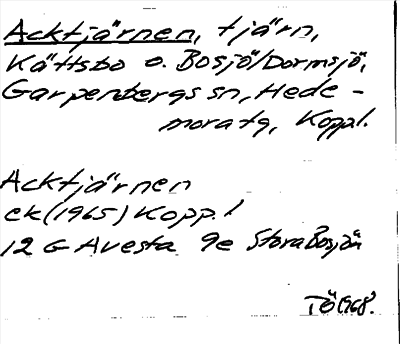 Acktjärnen, tjärn,
Kättsbo o. Bosjö/Dormsjö,
Garpenbergs sn, Hede-
mora tg, Koppl.
Acktjärnen
ek (1965) Kopp. l
12 G Avesta 9e Stora Bosjön
TÖ 1968